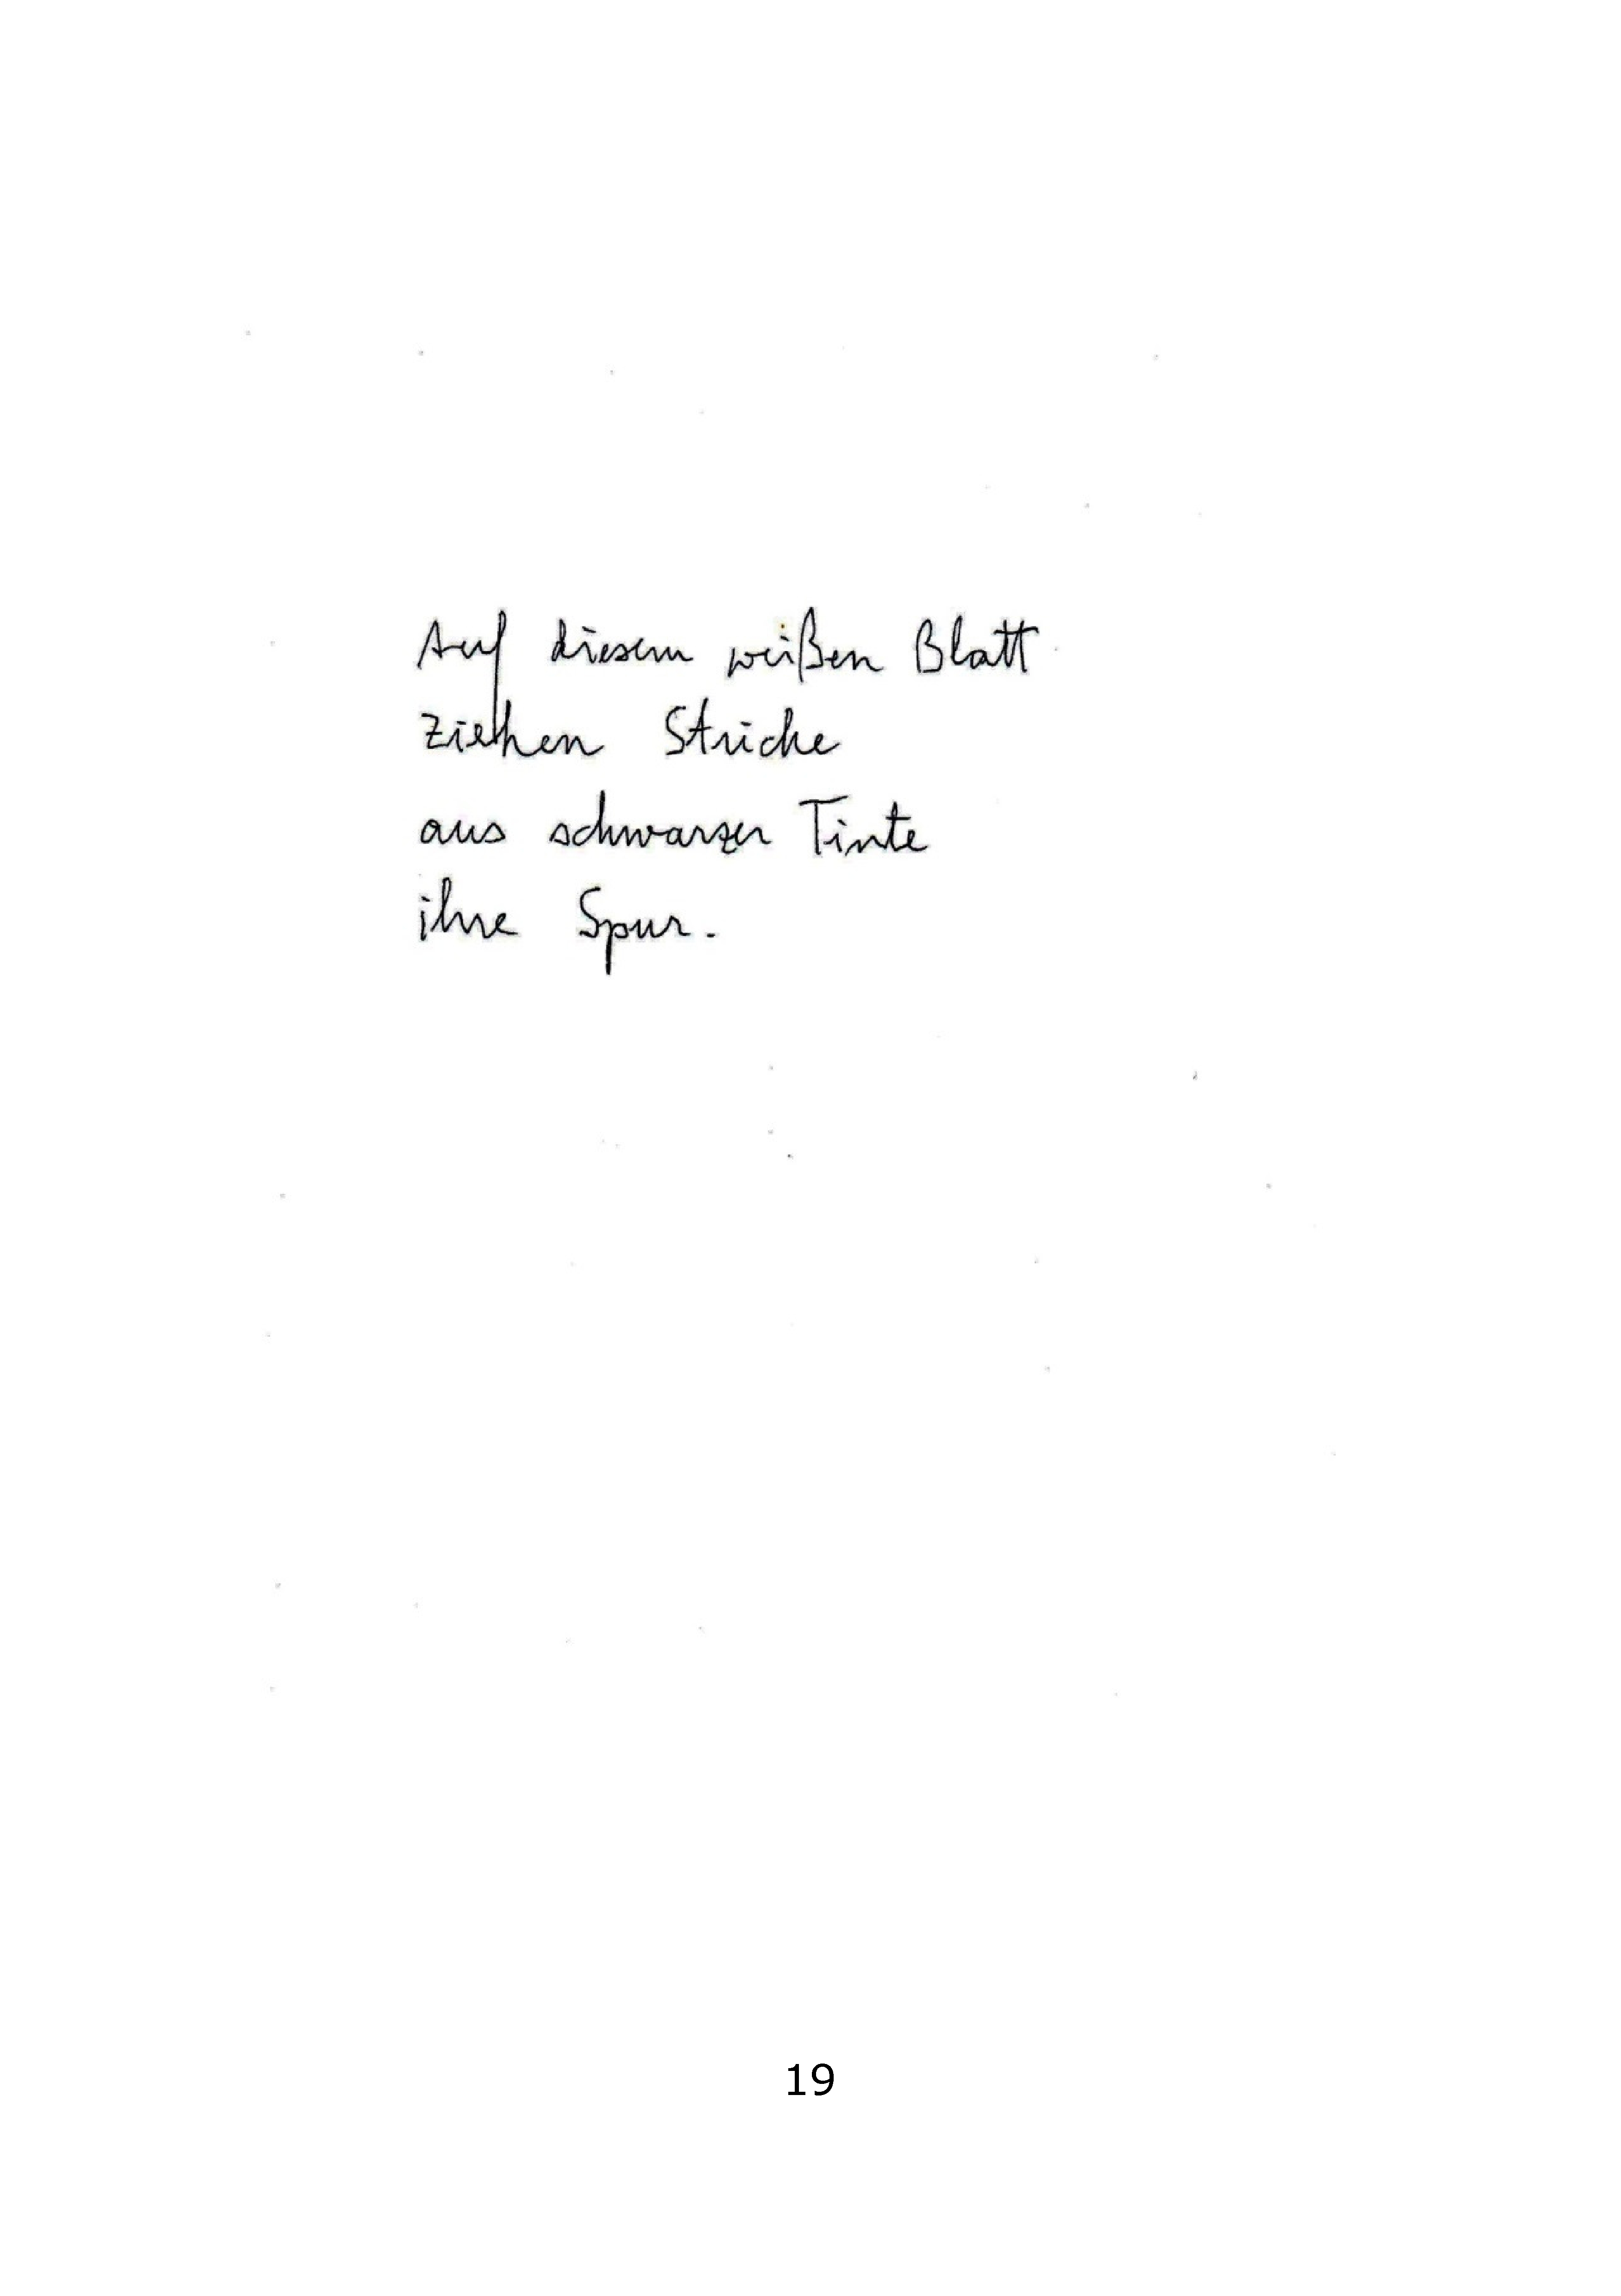 Auf diesem weißen Blatt
ziehen Striche
aus schwarzer Tinte
ihre Spur.
19